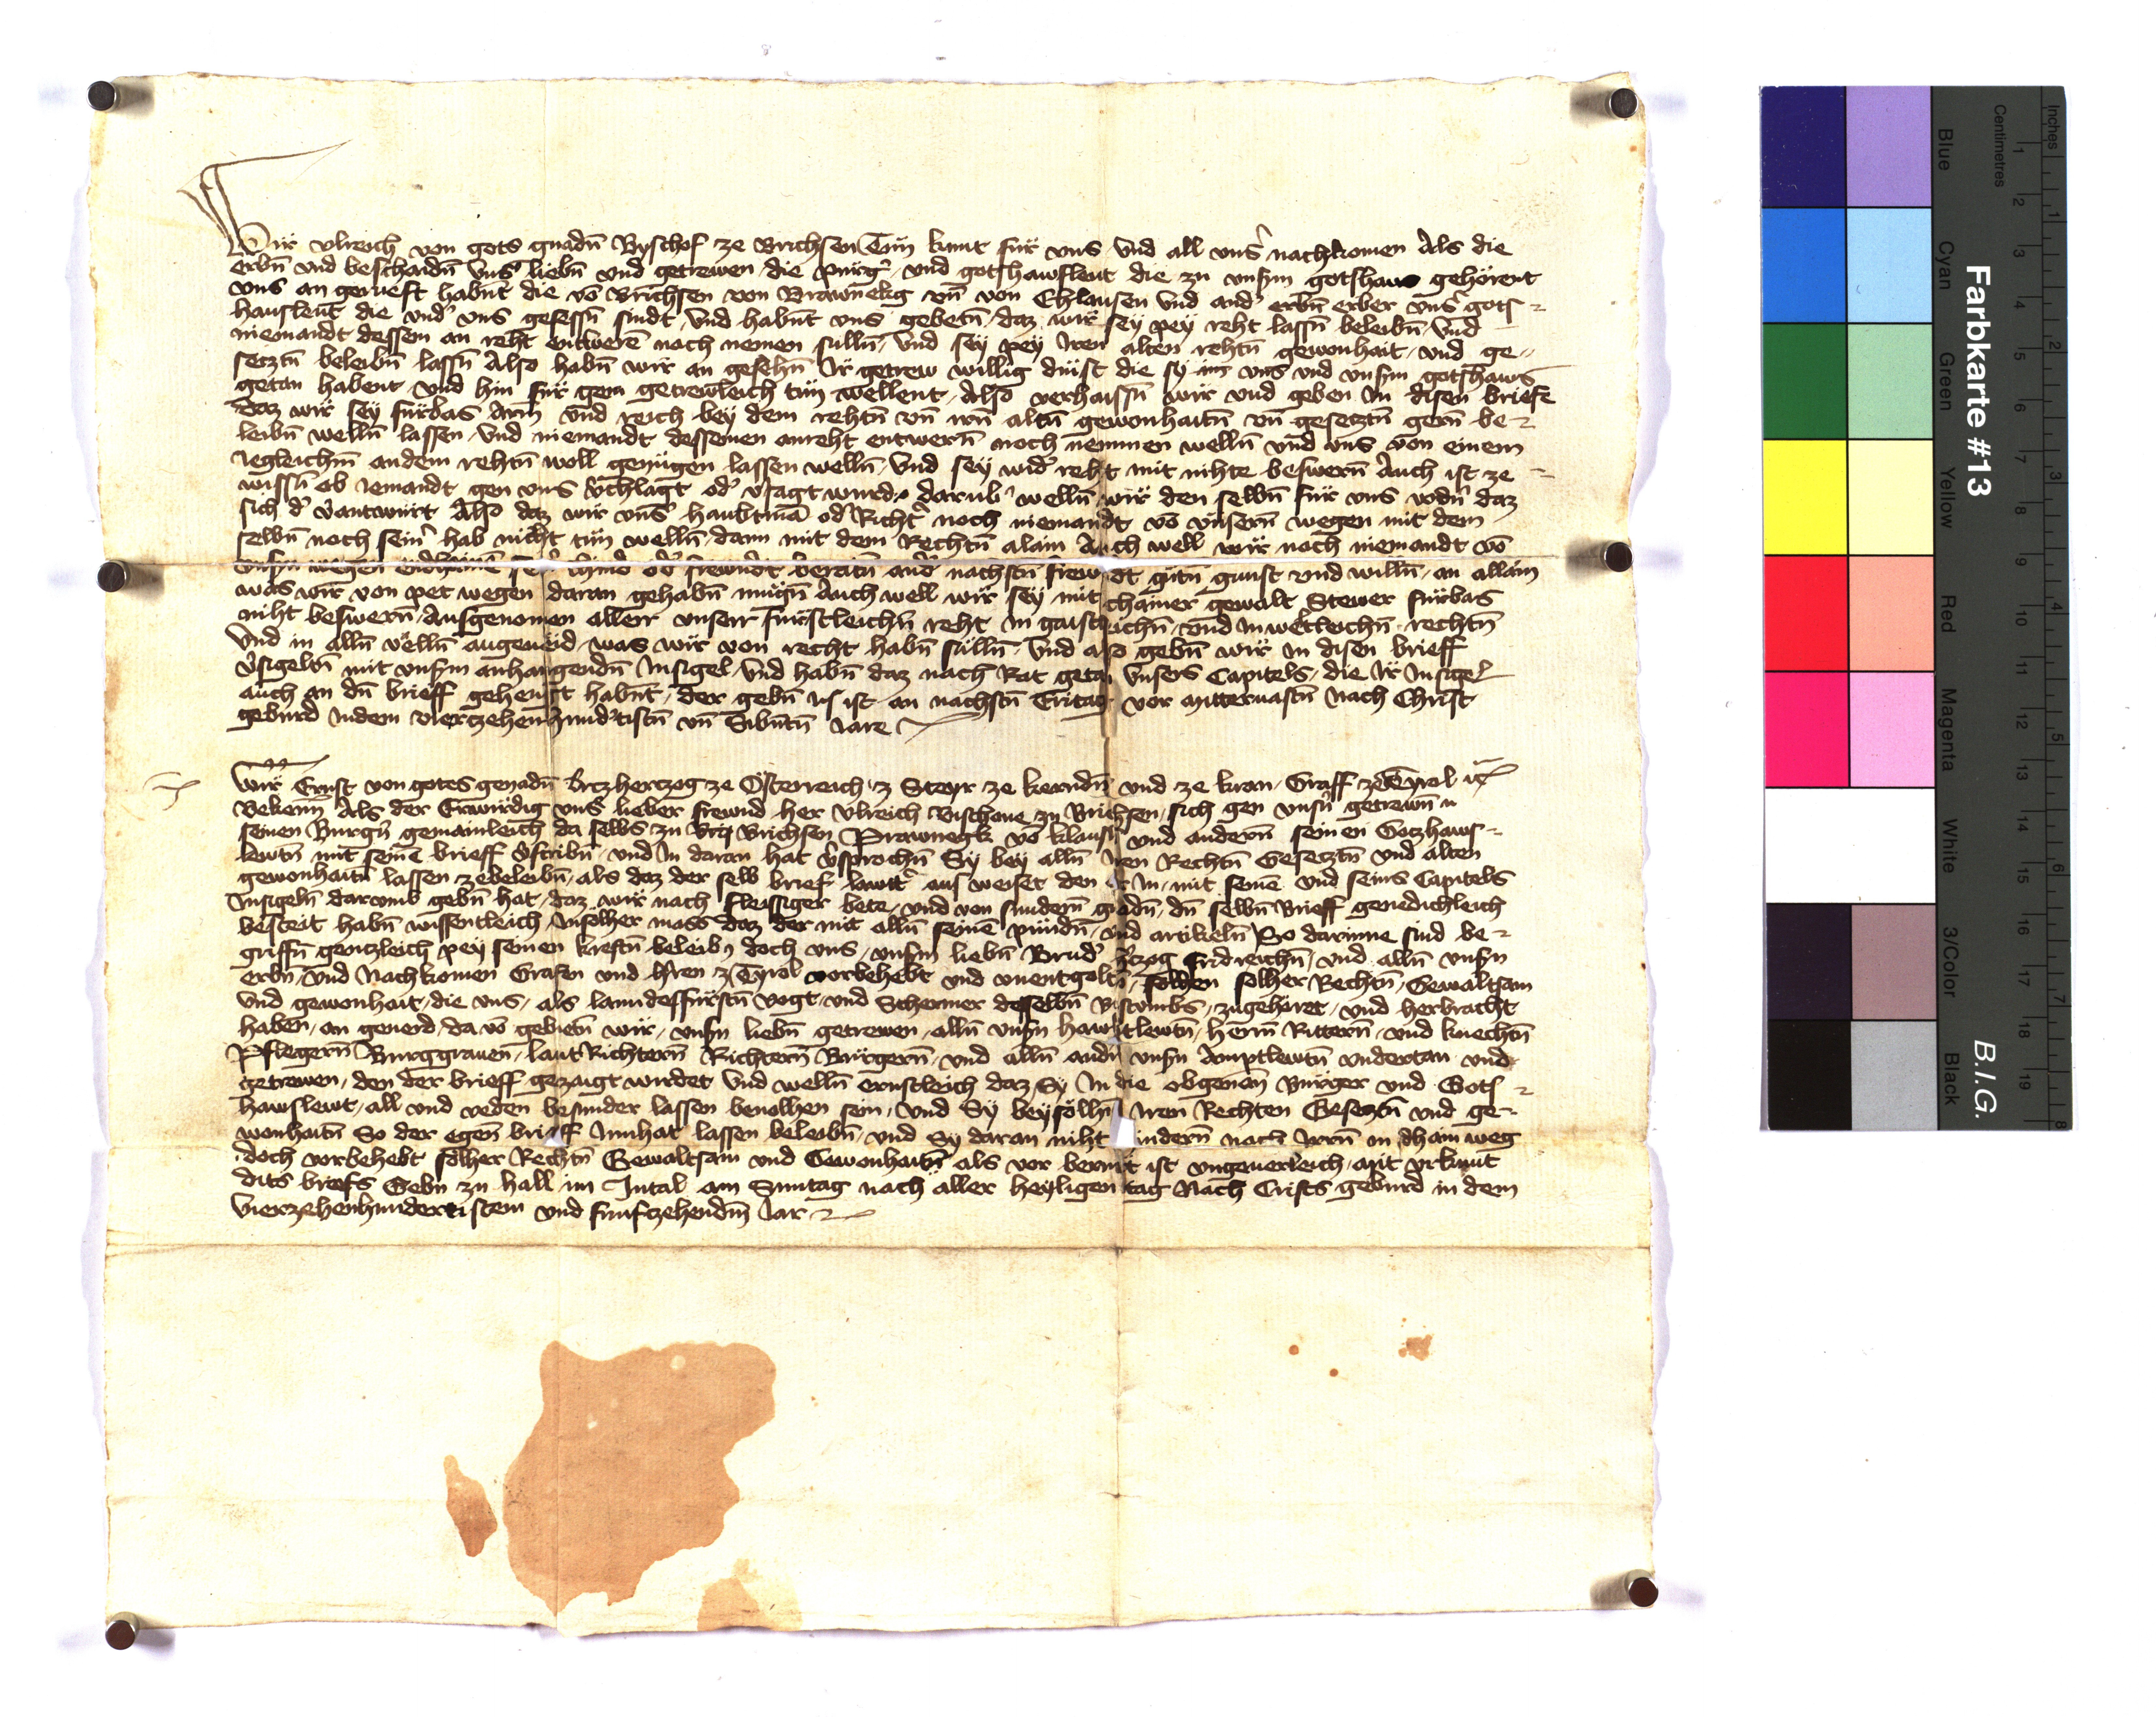 Wir vlreich von gots gnadn̄ Byschof ze Brichsen Tun kunt fur vns vnd all vnsʾ nachkomen Als die
erbn̄ vnd beschaidn̄ vnsʾ liebn̄ vnd getrewen die purgʾ vnd gotshawsleut die zu vnsm gotshaus gehörent
vns an gerueft habnt die vō Brichsen von Brawnekg vn̄ von Chlausen vnd andʾ erbn̄ erber vnsʾ gots
hausleut die vndʾ vns gesessn̄ sindt vnd habnt vns gebetn̄ daz wir sey pey reht lassn̄ beleibn̄ vnd
niemandt dessem an reht entwerē noch nemen sulln̄ vnd sey pey iren alten rehtn̄ gewonhait vnd ge
setztn̄ beleibn̄ lassn̄ Also habn̄ wir an gesehn̄ Ir getrew willig dinst die sy vns vnd vnsm gotshaws
getan habent vnd hin fur gern getrewleich tun wellent Also verhaissn̄ wir vnd geben In disen briefe
daz wir sey furbas Arm vnd reich bey dem rehtn̄ vn̄ irn̄ altn̄ gewonhaitn̄ vn̄ gesetztn̄ gern̄ be
leibn̄ welln̄ lassen vnd niemandt dessemen anreht entwern̄ noch nemmen welln̄ vnd vns von einem
iegleichm̄ andem rehtn̄ woll genugen lassen welln̄ vnd sey widʾ reht mit nihte beswern̄ Auch ist ze
wissn̄ ob iemandt gen vns vʾchlagt odʾ vʾsagt wurde darubʾ welln̄ wir den selbn̄ fur vns vodn̄ daz
sich dʾ vʾantwurt Also daz wir vnsʾ haubtmā odʾ Richtʾ noch niemandt vō vnsern̄ wegen mit dem
selbn̄ noch seinʾ hab nicht tun welln̄ dann mit dem Rechtn̄ alain Auch well wir noch niemandt vō
vnsn wegen odʾ frewndt beratn̄ andʾ nachstn̄ frewndt gutn̄ gunst vnd willn̄ an allain
was wir von pet wegen daran gehabn̄ mugn̄ Auch well wir sey mit chainer gewalt Stewer furbas
niht beswern̄ Ausgenomen allerr vnserr furstleichn̄ reht In gaistleichn̄ vnd In wertleichn̄ rechtn̄
vnd in alln̄ velln̄ was wir von recht habn̄ sulln̄ vnd also gebn̄ wir In disen brieff
vʾsigeltn̄ mit vnsm anhangendn̄ Insigel vnd habn̄ daz nach Rat getan vnsers Capitels die Ir Insigel
auch an dn̄ brieff gehengt habnt der gebn̄ ist an nachstn̄ Eritag vor mitteruastn̄ Nach Christ
geburd Indem vierczehenhundʾtistn̄ vn̄ Sibntn̄ Iare
Wir Ernst von gotes genadn̄ Ertzhertzog ze Österreich ze Steyr ze kerndn̄ vnd ze krain Graff ze Tyrol
Bekenn̄ Als der Erwirdig vns lieber frewnd her Vlreich Bischoue zu Brichsen sich gen vnsn̄ getrewn̄
seinen Burgn̄ gemainleich da selbs zu Brichsen Prawnegk vō klausn̄ vnd andern̄ seinen Gotzhaws
lewtn̄ mit seinē brieff vʾschribn̄ vnd In daran hat vʾsprochn̄ Sy bey alln̄ iren Rechtn̄ Gesetztn̄ vnd alten
gewonhaitn̄ lassen ze beleibn̄ als daz der selb brief lawttʾ aus weiset den er In mit seinē vnd seins Capitels
Insigeln̄ darumb gebn̄ hat daz wir nach fleissiger bete vnd von sundern̄ gnadn̄ dn̄ selbn̄ Brieff genedichleich
bestett habn̄ wissentleich Insolher mass daz der mit alln̄ seinē pundn̄ vnd artikeln̄ So darinne sind be
griffn̄ gentzleich pey seinen kreftn̄ beleib doch vns vnsm liebn̄ Brudʾ hʾtzog fridreichn̄ vnd alln̄ vnsn
erbn̄ vnd Nachkomen Grafen vnd hʾren ze Tyrol vorbehebt vnd vnentgoltn̄ solhen solher Rechtn̄ Gewaltsam
vnd gewonhait die vns als lanndesfurstn̄ vogt vnd Schermer desselbn̄ Bistumbs zugehöret vnd herbracht
haben an geuerd da vō gebietn̄ wir vnsn liebn̄ getrewen alln̄ vnsn hawbtlewtn̄ hern̄ Rittern̄ vnd knechtn̄
Pflegern̄ Burggrauen̄ lantRichtern̄ Richtern̄ Burgern̄ vnd alln̄ andn̄ vnsn Amptlewtn̄ vndertan vnd
getrewen den der brieff gezaigt wirdet vnd welln̄ ernstleich daz Sy In die obgenan̄ Burger vnd Gots
hawslewt all vnd yeden besunder lassen beuolhen sein vnd Sy bey sölln̄ Iren Rechten Gesetzn̄ vnd ge
wonhaitn̄ So der egen̄ brieff Innhat lassen beleibn̄ vnd Sy daran niht hindern̄ noch Irrn̄ in dhain weg
doch vorbehebt solher Rechtn̄ Gewaltsam vnd Gewonhaitn̄ als vor berurt ist vngeuerleich mit vrkunt
dits briefs Gebn zu hall im Intal am Sunntag nach aller heyligen tag Nach Crists geburd in dem
Vierzehenhundertistem vnd funftzehendm̄ Iar
Farbkarte #13
B.I.G.
Inches
Centimetres
Blue
Cyan
Green
Yellow
Red
Magenta
White
3/Color
Black
1 2 3 4 5 6 7 8 9 10 11 12 13 14 15 16 17 18 19
1 2 3 4 5 6 7 8